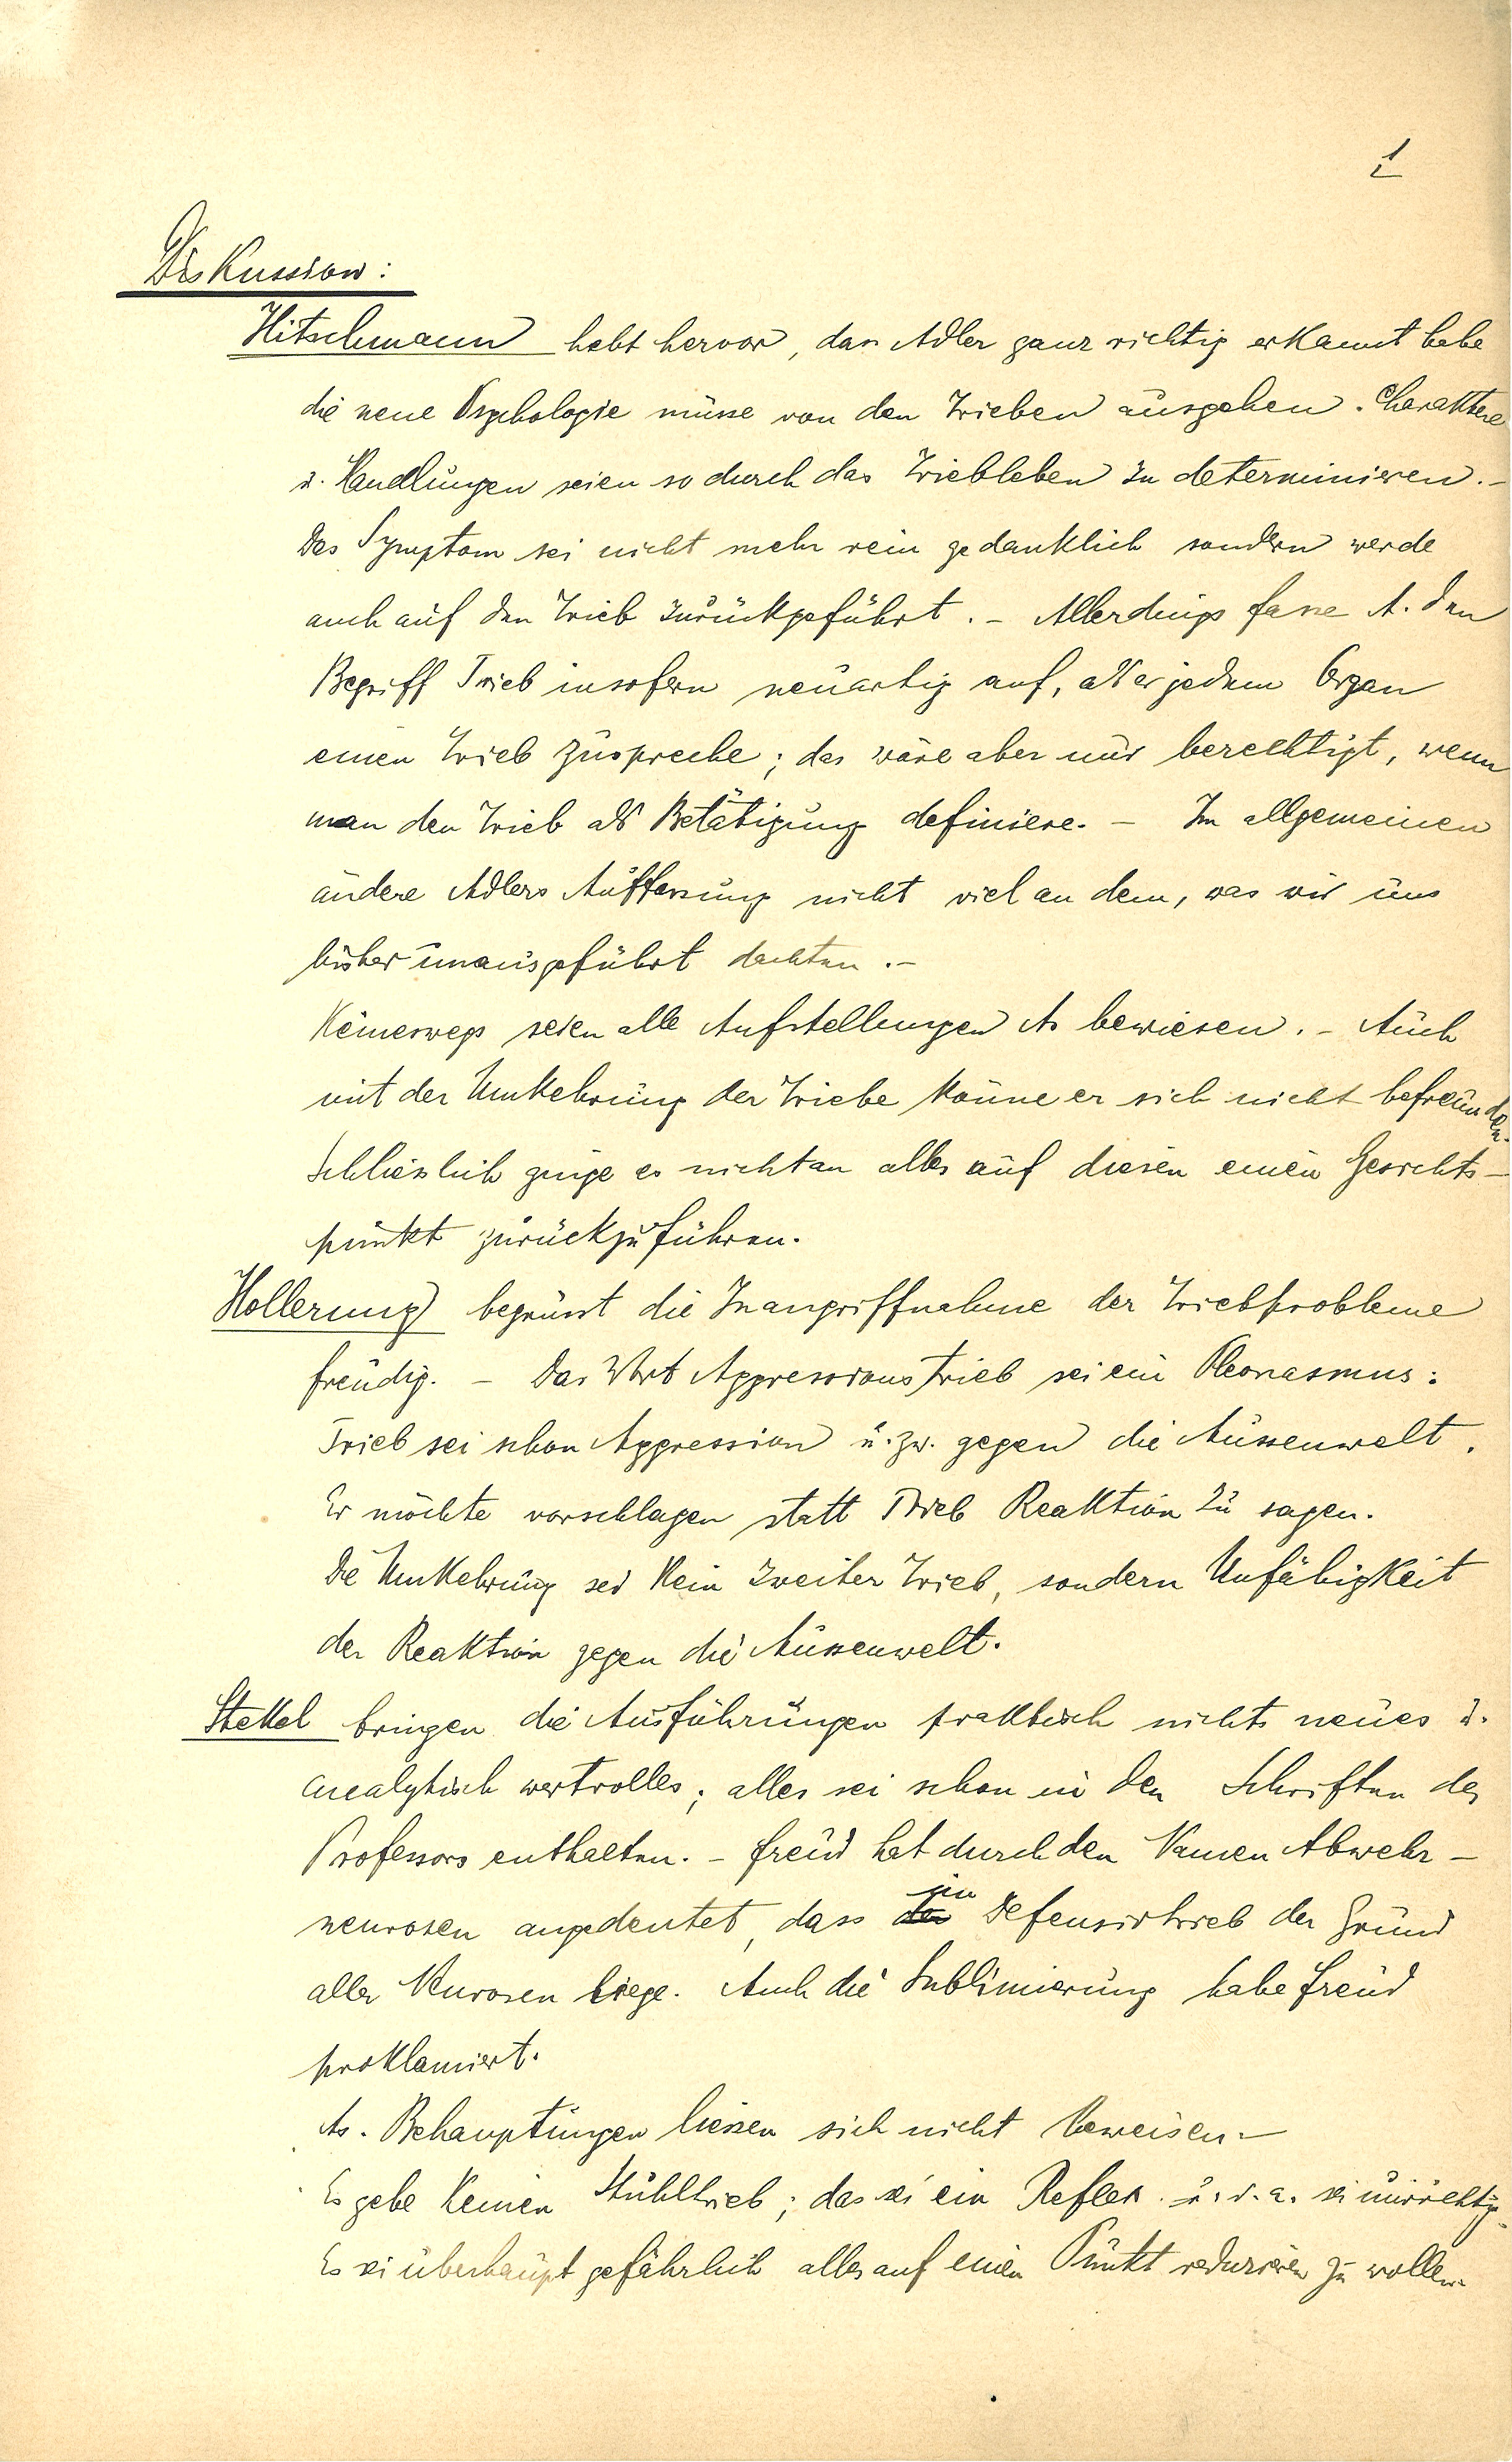 1
Diskussion:
Hitschmann hebt hervor, dass Adler ganz richtig erkannt habe
die neue Psychologie müsse von den Trieben ausgehen. Charaktere
u. Handlungen seien so durch das Triebleben zu determinieren. –
Das Symptom sei nicht mehr rein gedanklich sondern werde
auch auf den Trieb zurückgeführt. – Allerdings fasse A. den
Begriff Trieb insofern neuartig auf, als er jedem Organ
einen Trieb zuspreche; das wäre aber nur berechtigt, wenn
man den Trieb als Betätigung definiere. – Im allgemeinen
ändere Adlers Auffassung nicht viel an dem, was wir uns
bisher unausgeführt dachten. –
Keineswegs seien alle Aufstellungen As bewiesen. – Auch
mit der Umkehrung der Triebe könne er sich nicht befreunden.
Schliesslich ginge es nicht an alles auf diesen einen Gesichts–
punkt zurückzuführen.
Hollerung begrüsst die Inangriffnahme der Triebprobleme
freudig. – Das Wort Aggressionstrieb sei ein Pleonasmus:
Trieb sei schon Aggression u. zw. gegen die Aussenwelt.
Er möchte vorschlagen statt Trieb Reaktion zu sagen.
Die Umkehrung sei kein zweiter Trieb, sondern Unfähigkeit
der Reaktion gegen die Aussenwelt.
Stekel bringen die Ausführungen praktisch nichts neues u.
analytisch wertvolles; alles sei schon in den Schriften des
Professors enthalten. – Freud hat durch den Namen Abwehr–
neurosen angedeutet, dass ein Defensivtrieb der Grund
aller Neurosen liege. Auch die Sublimierung habe Freud
proklamiert.
As. Behauptungen liessen sich nicht beweisen –
Es gebe keinen Stuhltrieb; das sei ein Reflex. u. s. a. sei unrichtig.
Es sei überhaupt gefährlich alles auf einen Punkt reduzieren zu wollen.